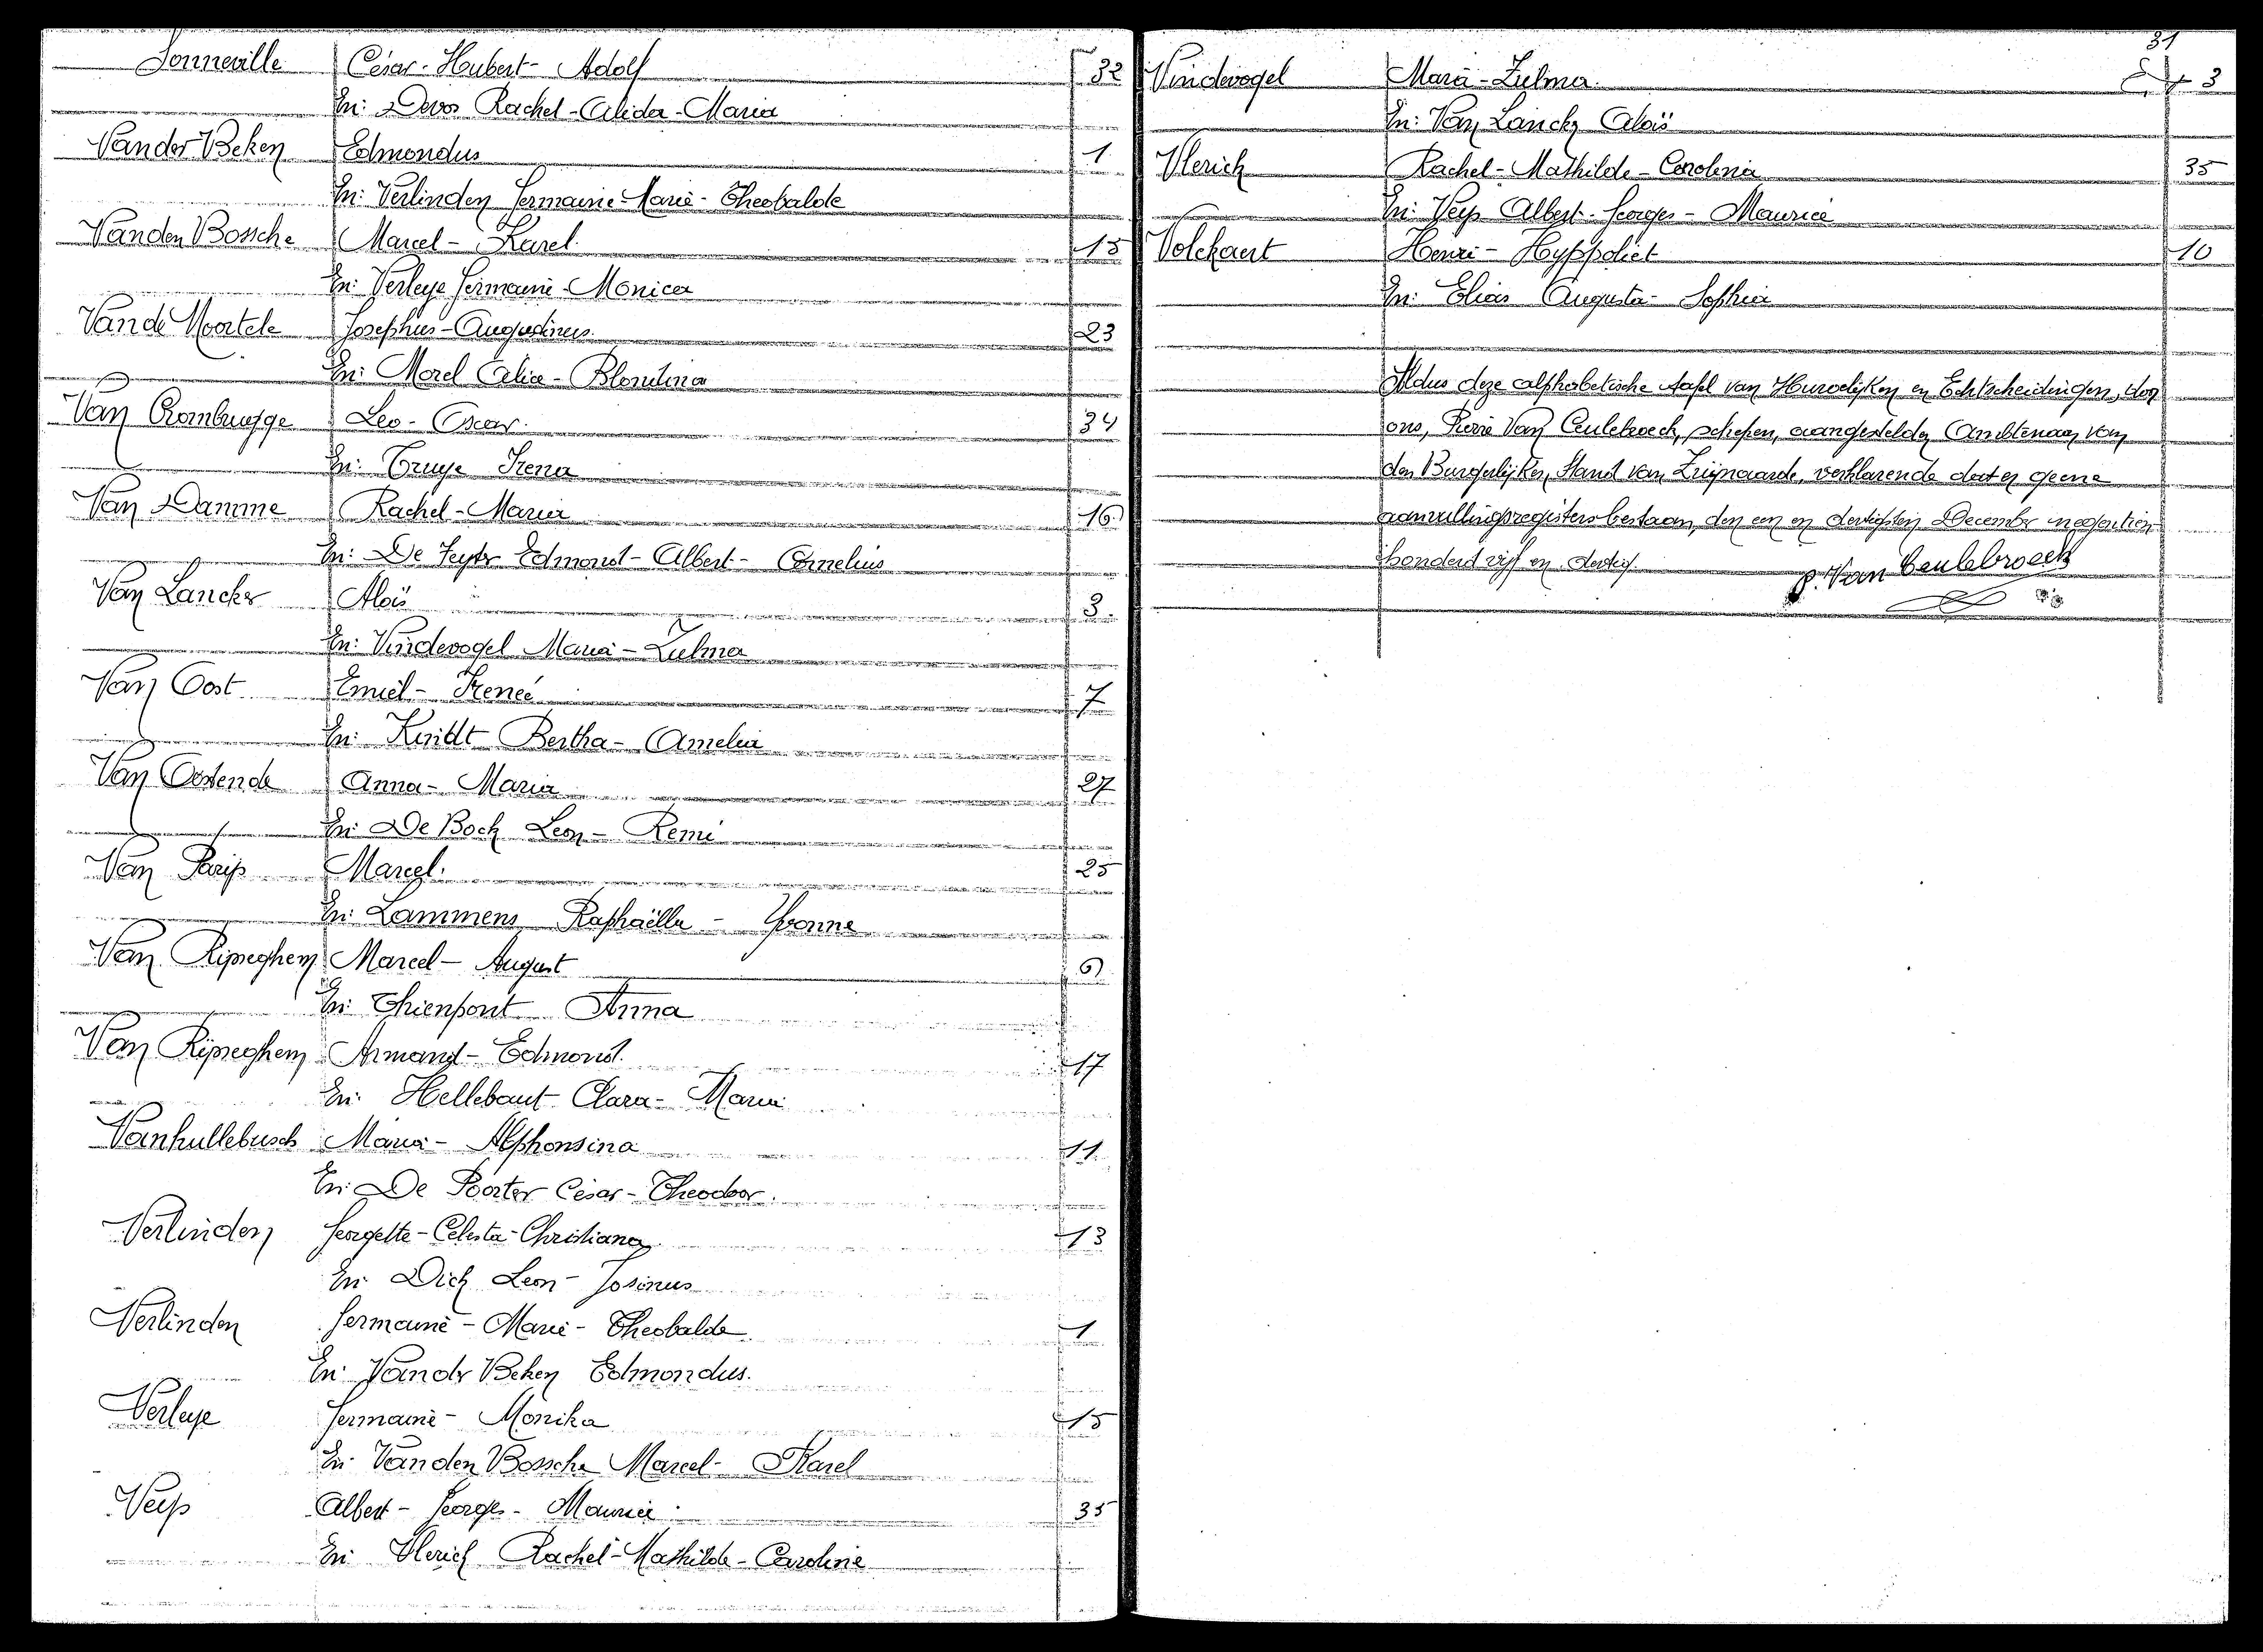 Sonneville César-Hubert-Adolf 32
En: Devos Rachel-Alida-Maria
Vander Beken Edmondus 1
En: Verlinden Germaine-Marie-Theobalde
Vanden Bossche Marcel-Karel. 15
En: Verleye Germaine-Monica
Van de Moortele Josephus-Augustinus. 23
En: Morel Alice-Blondina
Van Crombrugge Leo-Oscar. 34
En: Truye Irena
Van Damme Rachel-Maria 16
En: De Zuyter Edmond-Albert-Cornelius
Van Lancker Aloïs 3.
En: Vindevogel Maria-Zulma
Van Oost Emiel-Irenee 7
En: Kindt Bertha-Amelia
Van Oostende Anna-Maria 27
En: De Bock Leon-Remi
Van Parijs Marcel. 25
En: Lammens Raphaëlla-Yvonne
Van Rijseghem Marcel-August 6
En: Thienpont Anna
Van Rijseghem Armand-Edmond. 17
En: Hellebaut Clara-Maria
Vanhullebusch Maria-Alphonsina 11
En: De Poorter César-Theodoor.
Verlinden Georgette-Celesta-Christiana 13
En: Dick Leon-Josinus
Verlinden Germaine-Marie-Theobalde 1
En: Vander Beken Edmondus.
Verleye Germaine-Monika 15
En: Vanden Bossche Marcel-Karel
Veys Albert-Georges-Maurice 35
En: Vlerick Rachel-Mathilde-Caroline
31
Vindevogel Maria-Zulma 3
En: Van Lancker Aloïs
Vlerick Rachel-Mathilde-Carolina 35
En: Veys Albert-Georges-Maurice
Volckaert Henri-Hyppoliet 10
En: Elias Augusta-Sophia
Aldus deze alphabetische tafel van Huwelijken en Echtscheidingen, door
ons, Pierre Van Ceulebroeck, schepen, aangestelden Ambtenaar van
den Burgerlijken Stand van Zwijnaarde, verklarende dat er geene
aanvullingsregisters bestaan, den een en dertigsten December negentien
honderd vijf en dertig.
P. Van Ceulebroeck